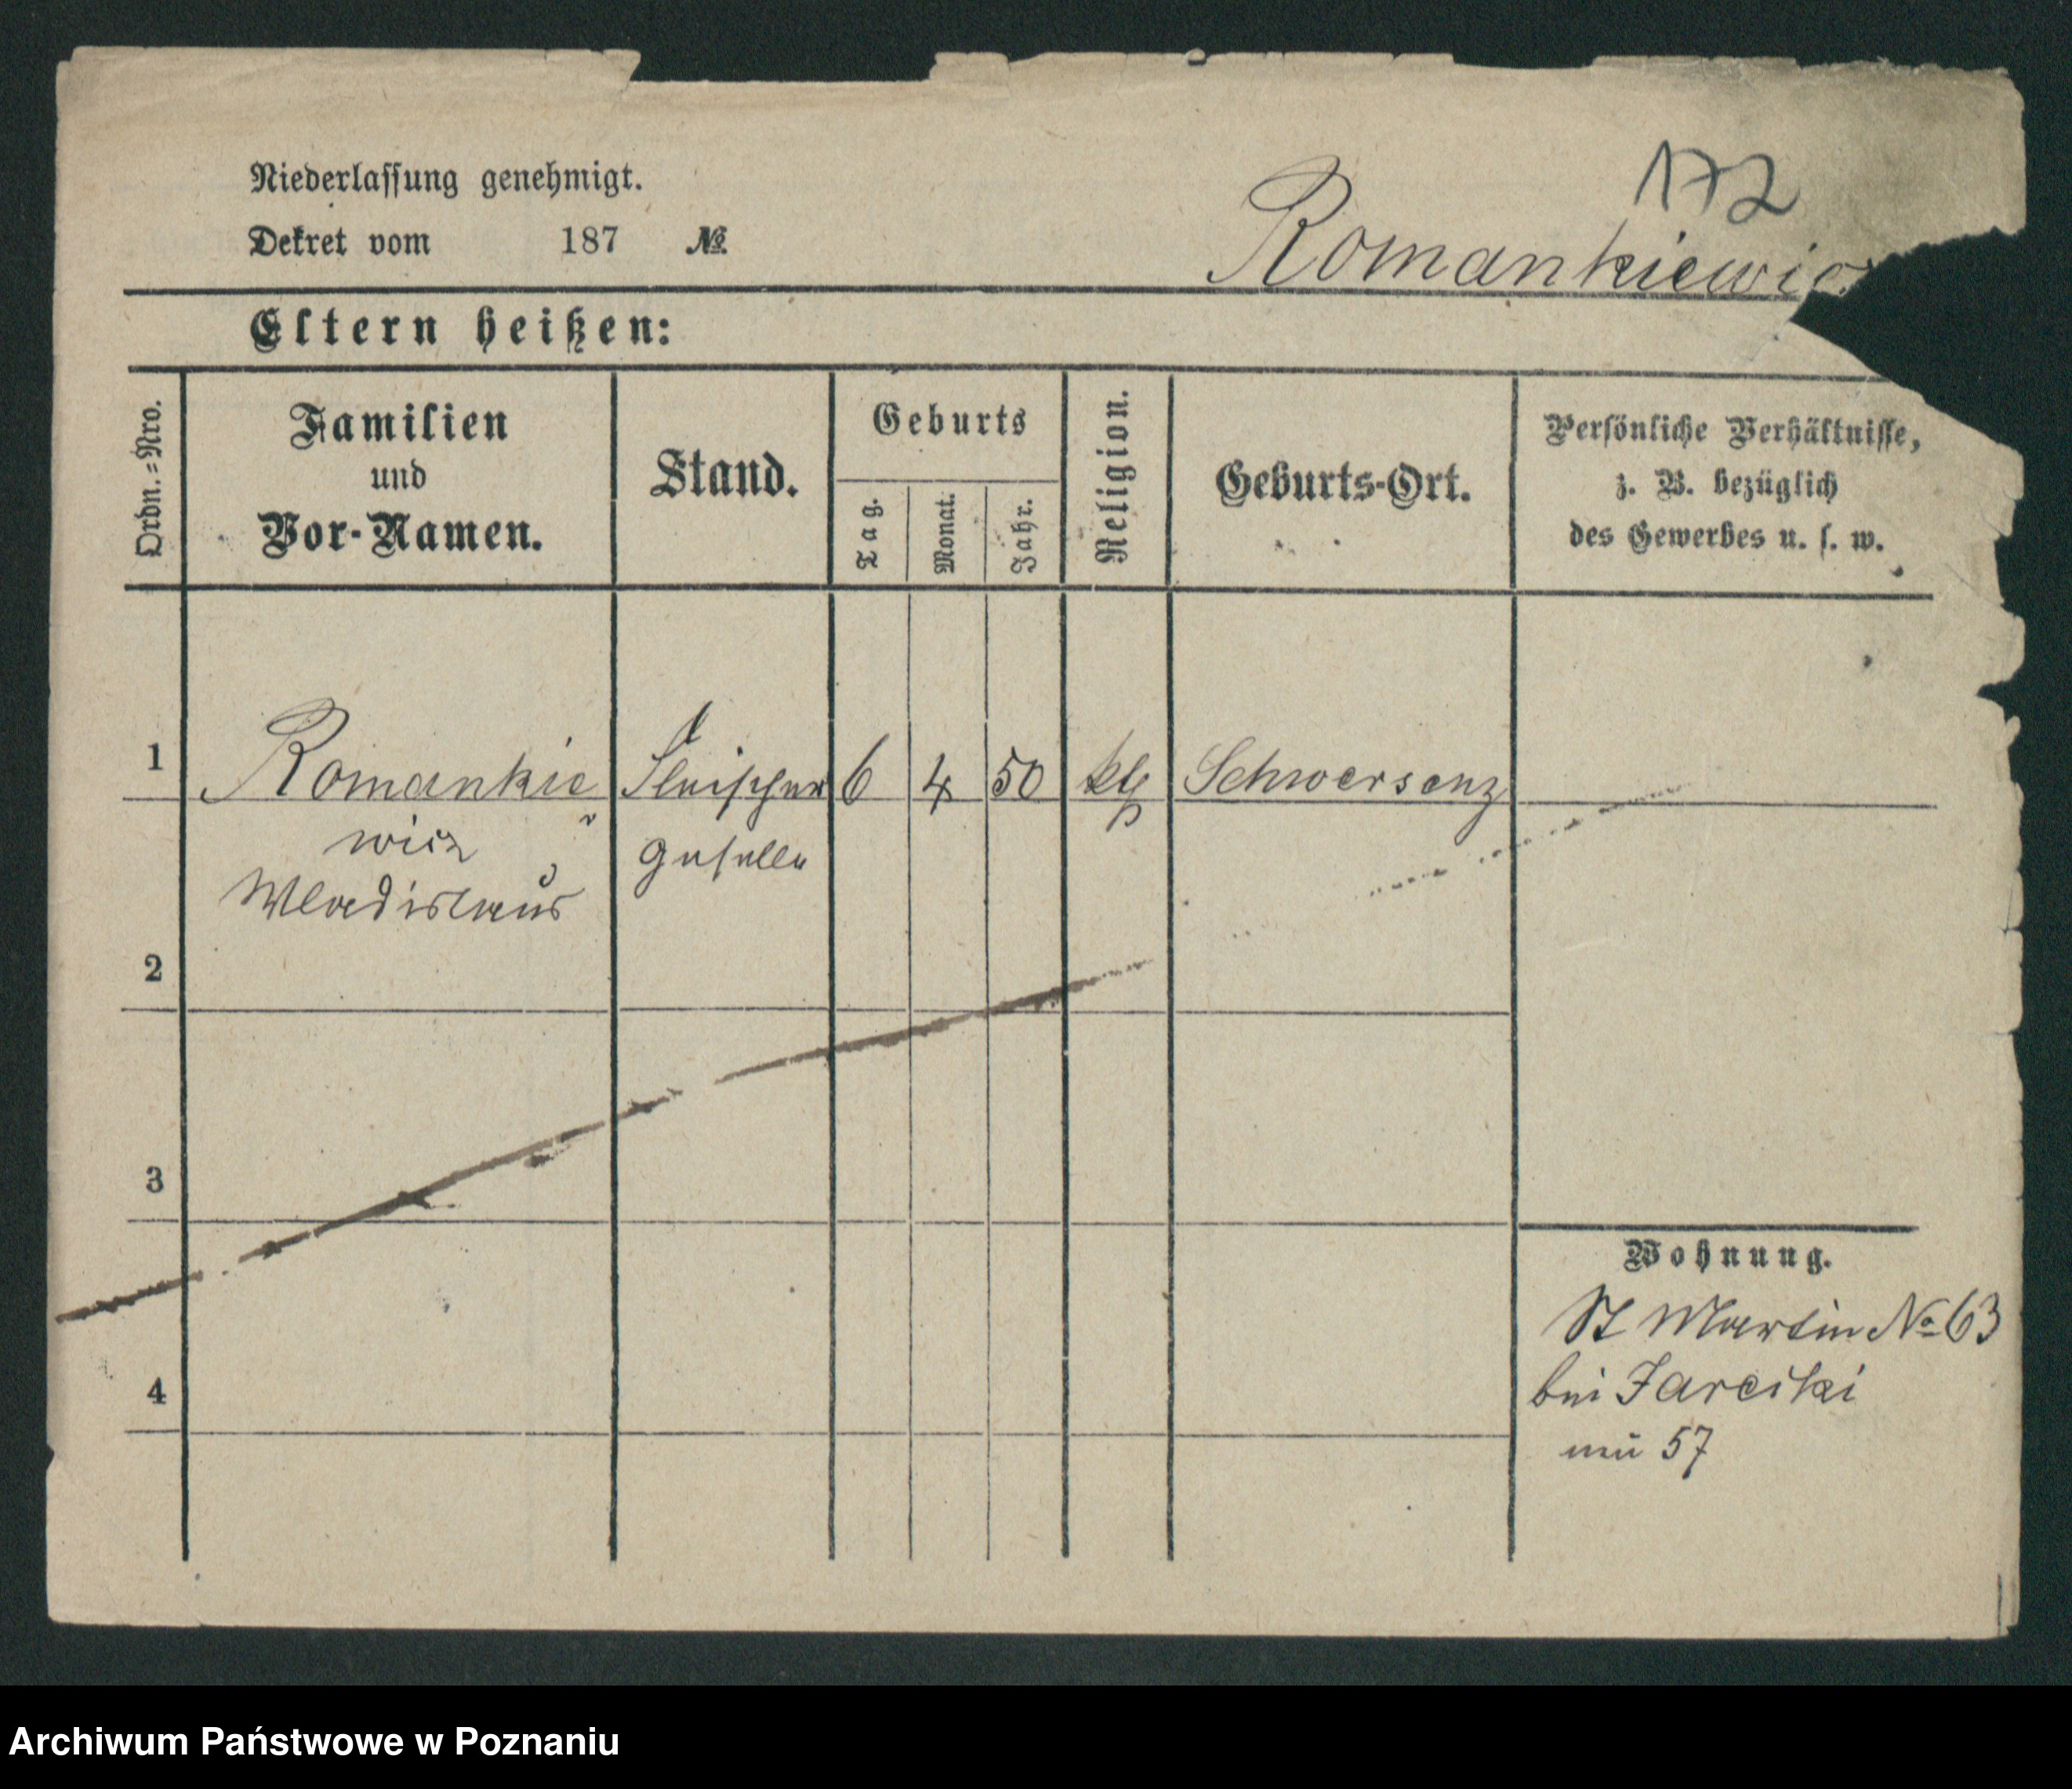 172
Niederlassung genehmigt.
Dekret vom 187 №
Romankiewic
Eltern heißen:
Ordn.=Nro.
Familien
und
Vor-Namen.
Stand.
Geburts
Tag.
Monat.
Jahr.
Religion.
Geburts-Ort.
Persönliche Verhältnisse,
z. B. bezüglich
des Gewerbes u. s. w.
1 Romankie Fleischer 6 4 50 kth Schwersenz
wicz geselle
Wladislaus
2
3
4
Wohnung.
St Martin No 63
bei Jarecki
57
Archiwum Państwowe w Poznaniu